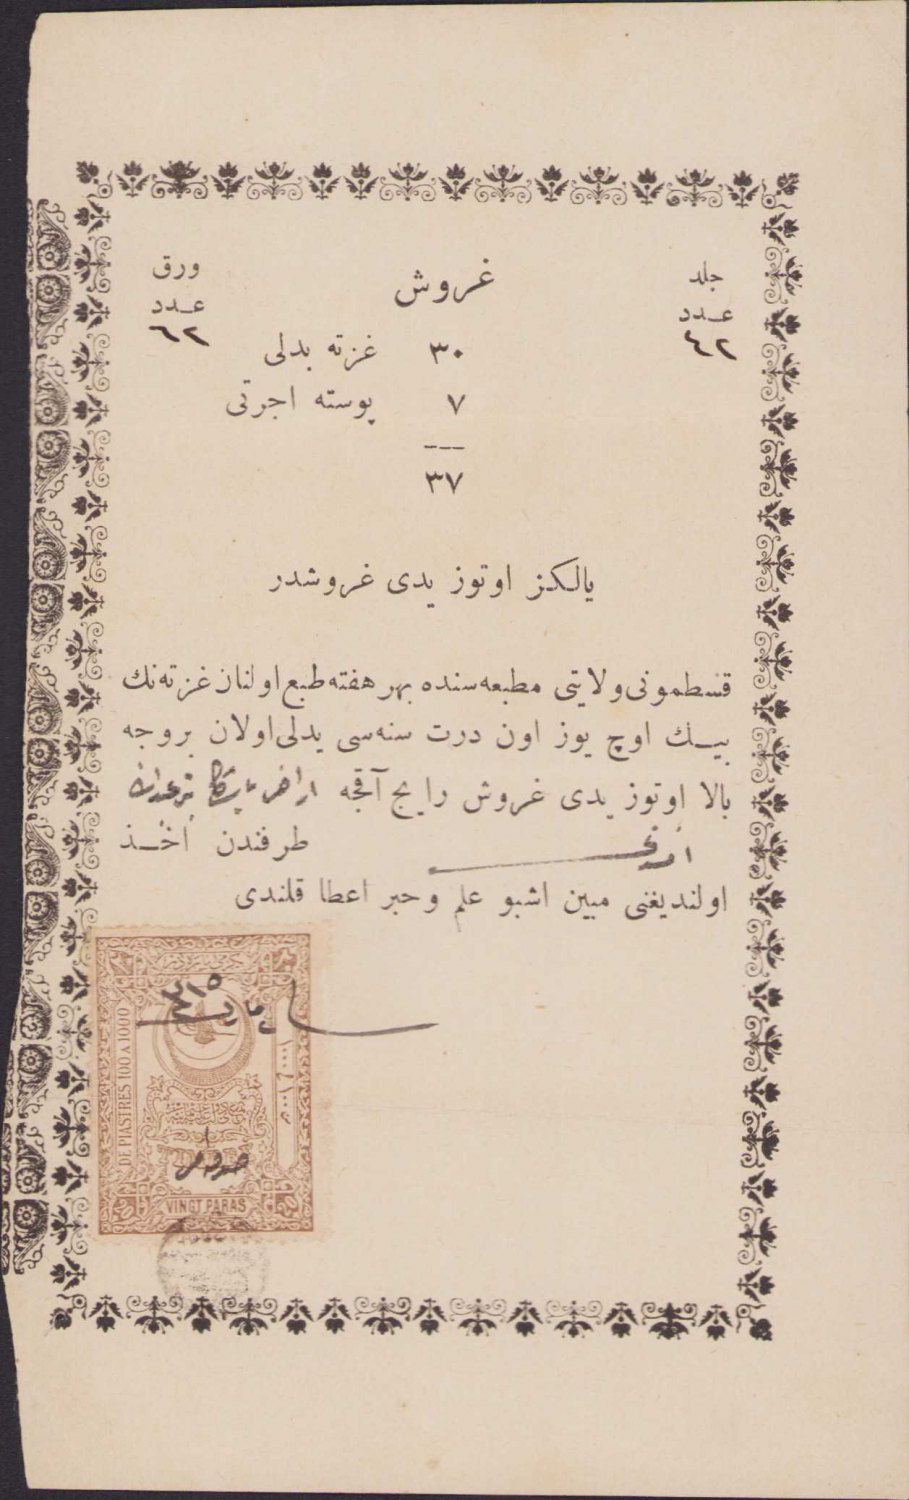 جلد
عـدد
٤٢
ورق
عـدد
٦٢
غروش
٣٠ غزته بدلی
٧ پوسته اجرتی
٣٧
یالکز اوتوز یدی غروشدر
قسطمونی ولایتی مطبعه‌سنده بهر هفته طبع اولنان غزته‌نك
بیـك اوچ یوز اون درت سنه‌سی بدلی اولان بروجه
بالا اوتوز یدی غروش رایج آقچه
طرفندن اخـذ
اولندیغنی مبین اشبو علم وحبر اعطا قلندی
مارت ٣١٥
DE PIASTRES 100 A 1000
VINGT PARAS